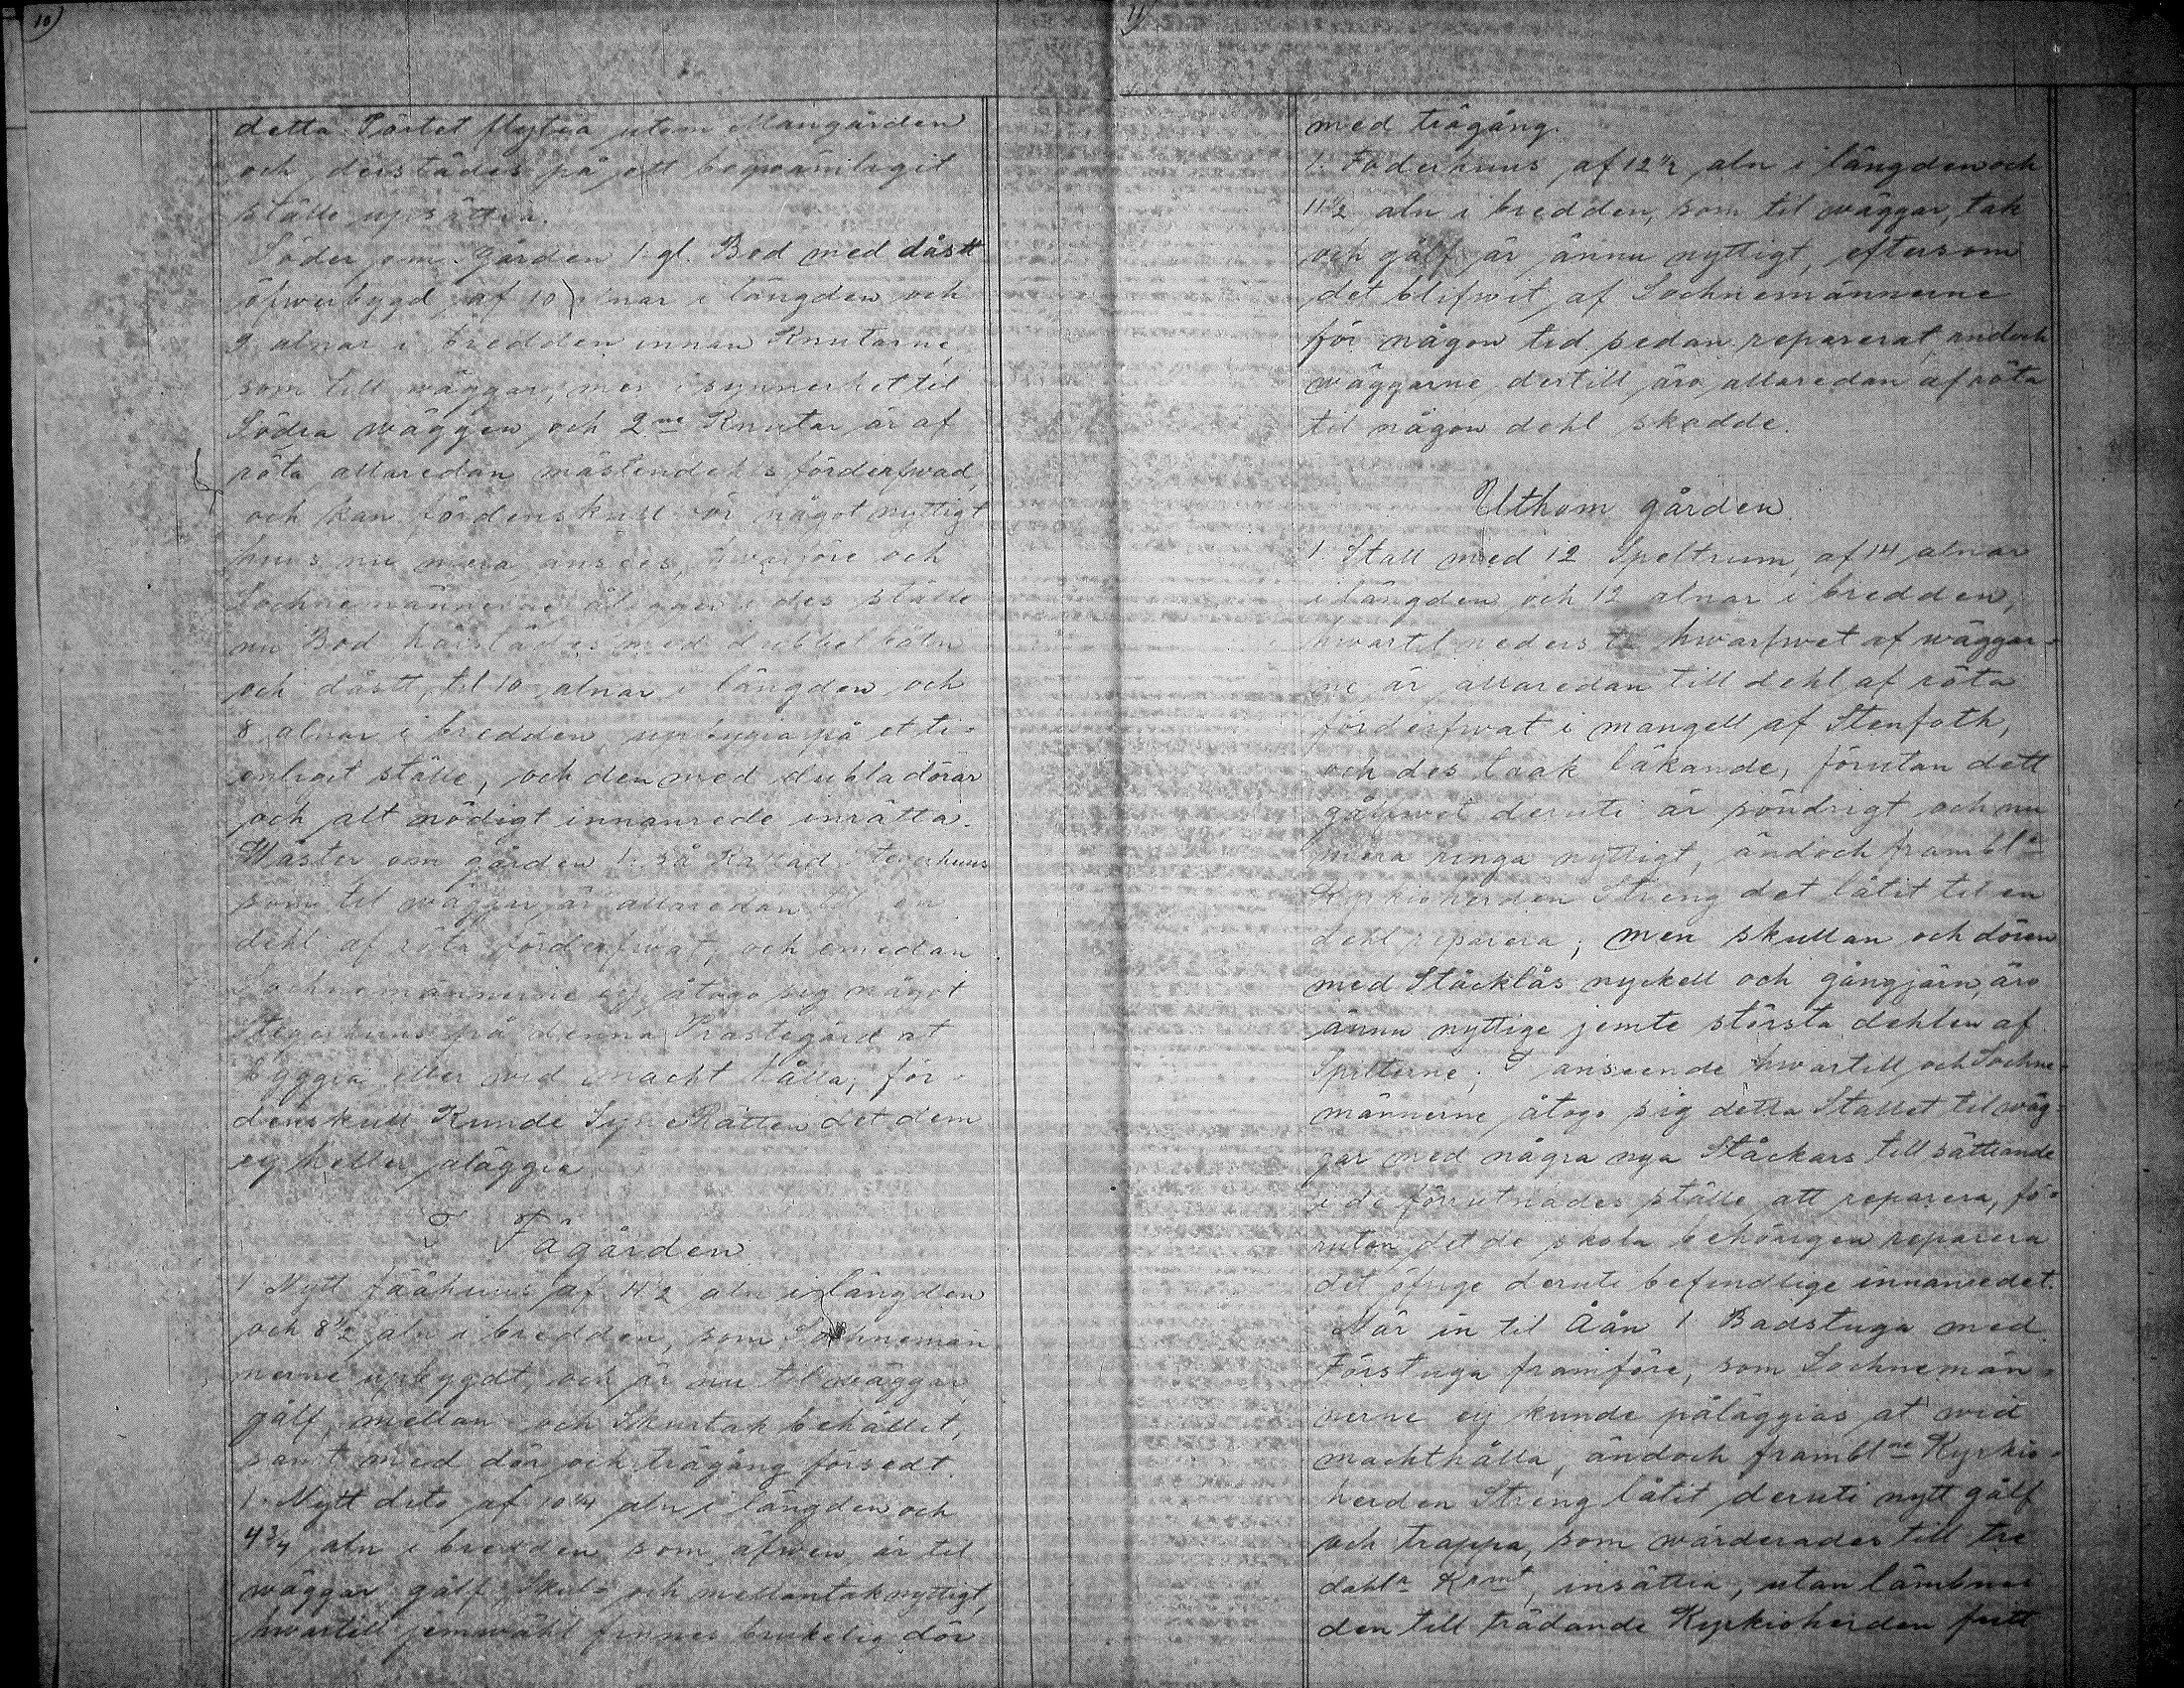 10)
detta Pörtet flytia utom Mangården
och derstädes på ett beqvämligit
ställe upsättia.
Söder om gården 1 gl. Bod med dåstt
öfwerbygd af 10 alnar i längden och
9 alnar i bredden innan Knutarne,
som till wäggar, men i synnerhet til
Södra wäggen och 2ne Knutar är af
röta allaredan mästendehls förderfwad,
och kan fördenskull för något nyttigt
huus nu mera anses, hwarföre och
Sochnemännerne åligger i des ställe
en Bod härstädes med dubbel båtn
och dåstt, til 10 alnar i längden och
8 alnar i bredden, up bygia på et ti-
enligit ställe, och den med dubla dörar
och alt nödigt innanrede inrätta.
Wäster om gården 1. så kallad Stegerhuus
som til wäggar är allaredan til en
dehl af röta förderfwat, och emedan
Sochnemännerne ej åtogo sig något
Stegerhuus på denna Prästegård at
byggia eller wid macht hålla, för-
denskull Kunde Syne Rätten det dem
ej heller påläggia
I Fägården
1 Nytt fäähuus af 11 1/2 aln i längden
och 8 1/2 aln i bredden, som Sochnemän
nerne upbygdt, och är nu til wäggar
gålf, mellan- och Skurtak behållit,
samt med dör och trägång försedt.
1. Nytt dito af 10 1/4 aln i längden och
4 3/4 aln i bredden som äfwen är til
wäggar gålf, Skul- och mellantak nyttigt,
hwartill jemwähl finnes brukelig dör
11)
med trägång.
1. Foderhuus af 12 1/2 aln i längden och
11 1/2 aln i bredden, som til wäggar, tak
och gålf är ännu nyttigt, eftersom
det blifwit af Sochnemännerne
för någon tid sedan reparerat, andoch
wäggarne dertill äro allaredan af röta
til någon dehl skadde.
Uthom gården
1. Stall med 12 Speltrum, af 14 alnar
i längden och 12 alnar i bredden,
hwartil nedersta hwarfwet af wäggar-
ne är allaredan till dehl af röta
förderfwat i mangell af Stenfoth,
och des taak läkande, förutan dett
gålfwet deruti är söndrigt och nu
mera ringa nyttigt, ändoch frambl:ne
Kyrkioherden Streng det låtit til en
dehl reparera; men skullan och dören
med Ståcklås nyckell och gångjärn, äro
ännu nyttige jemte största dehlen af
Spilterne; I anseende hwartill och Sochne-
männerne åtogo sig detta Stallet til wäg-
gar med några nya Ståckars till sättiande
i de förrutnades ställe att reparera, för-
rutan det de skola behörigen reparera
det öfrige deruti befindlige innanredet.
När in til Åån 1 Badstuga med
Förstuga framföre, som Sochnemän-
nerne ej kunde påläggias at wid
machthålla, ändoch frambl:ne Kyrkio-
herden Streng låtit deruti nytt gålf
och trappa, som wärderades till tre
dahl:r K:rmt, insättia, utan lämbnas
den till trädande Kyrkioherden fritt